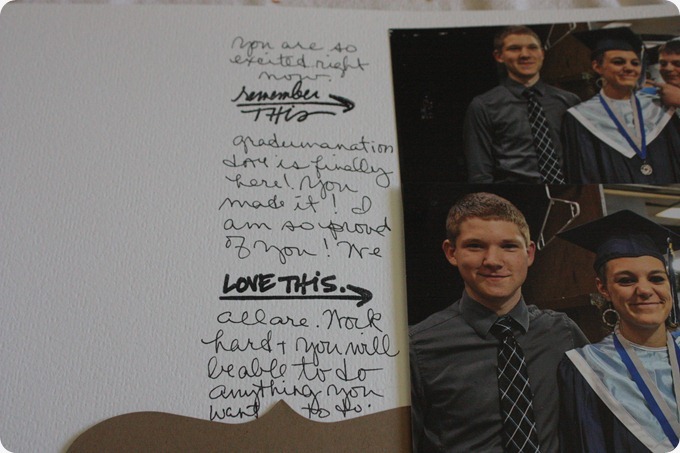 you are so
excited right
now.
remember
THis
gradeumanation
is finally
here! You
made it! I
am so proud
of you! We
LOVE THIS.
all are. Work
hard + you will
be able to do
anything you
want to do.